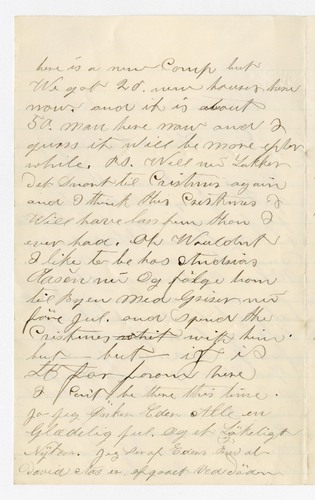 here is a new Comp but
We got 20. new houses here
now. and it is about
50. man here now and I
guess it will be more efter
while. Ps. Well nu lakker
det snart til Cristmus again
and I think this Cristmus I
Will have less fun then I
ever had. Oh Wouldnt
I like to be has Andreas
Aasen nu Og følge ham
til Byen Med Griser nu
före Jul. and spend the
Cristmes with him.
but but it is
to far from here
I Cant be there this time.
Jo Jeg önsker Eder Alle en
Gladelig jul. Og et Lykeligt
Nytaar. Jeg ser af Eders at
David Aas er afgaat Ved Döden